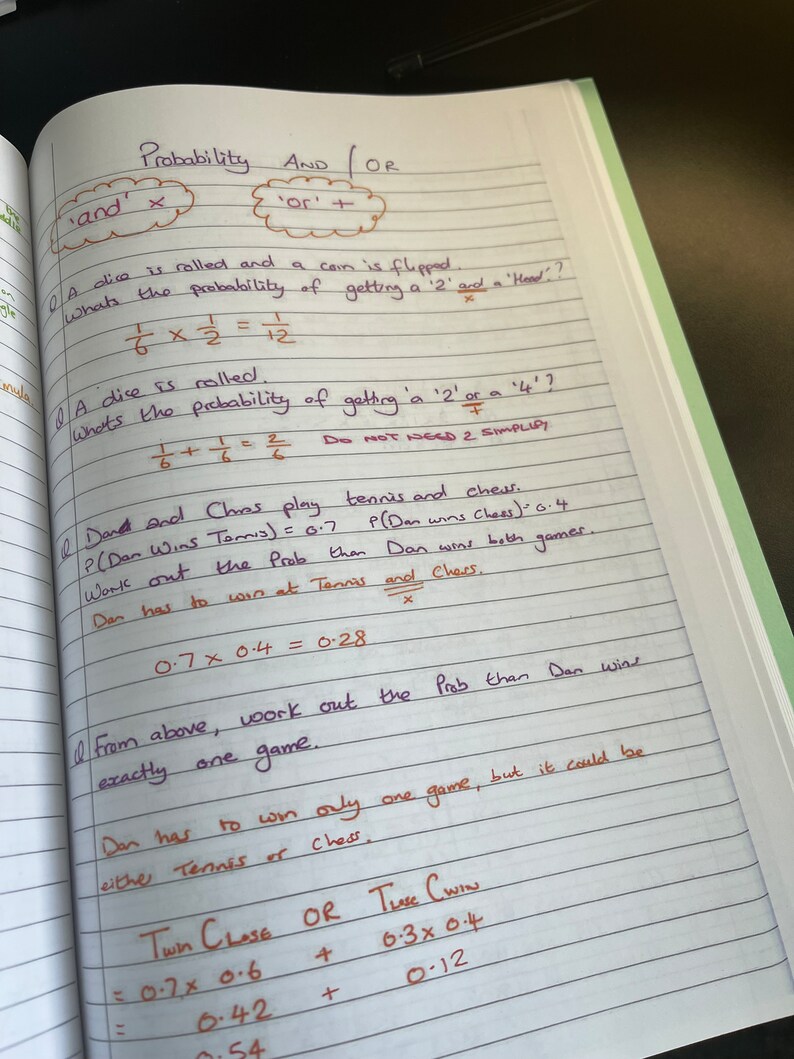 Probability AND / OR
'and' × 'or' +
Q A dice is rolled and a coin is flipped.
Whats the probability of getting a '2' and a 'Head'?
×
1/6 × 1/2 = 1/12
Q A dice is rolled.
Whats the probability of getting a '2' or a '4'?
+
1/6 + 1/6 = 2/6 DO NOT NEED 2 SIMPLIFY
Q Dan and Chris play tennis and chess.
P(Dan Wins Tennis) = 0.7 P(Dan wins Chess) = 0.4
Work out the Prob than Dan wins both games.
Dan has to win at Tennis and Chess.
×
0.7 × 0.4 = 0.28
Q From above, work out the Prob than Dan wins
exactly one game.
Dan has to win only one game, but it could be
either Tennis or Chess.
Twin Close OR Tlose Cwin
= 0.7 × 0.6 + 0.3 × 0.4
= 0.42 + 0.12
0.54